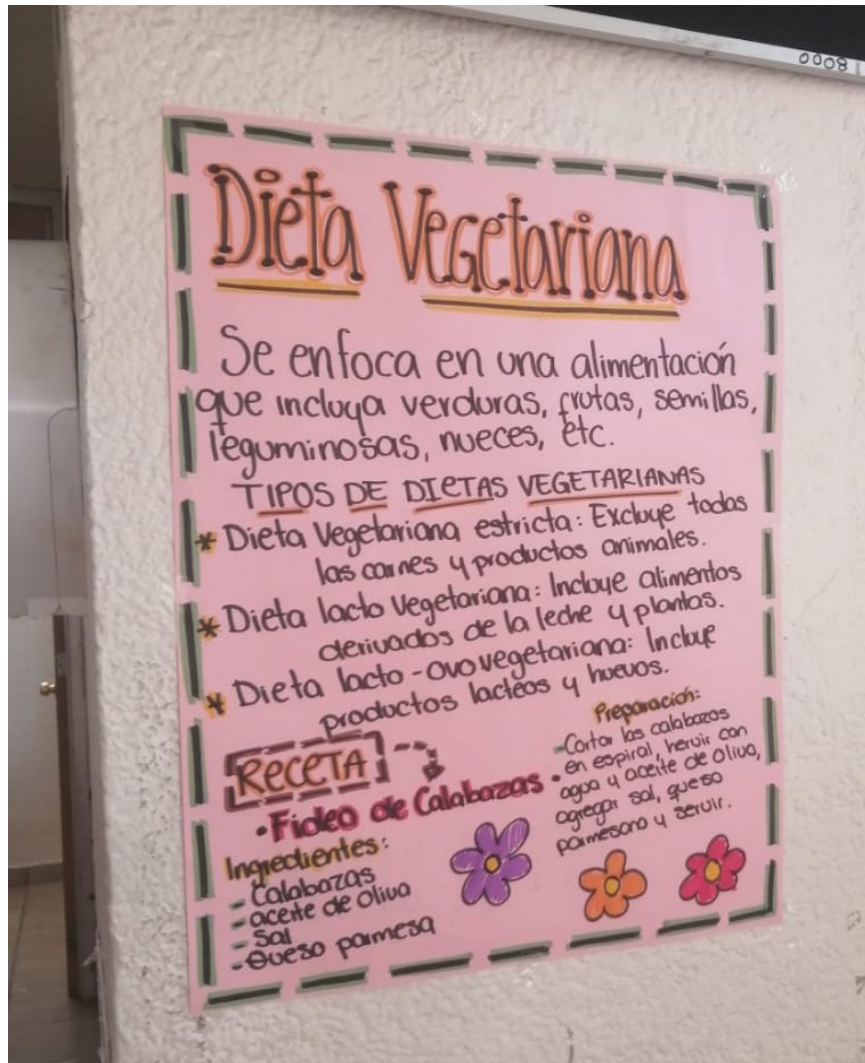 0008
Dieta Vegetariana
Se enfoca en una alimentación
que incluya verduras, frutas, semillas,
leguminosas, nueces, etc.
TIPOS DE DIETAS VEGETARIANAS
* Dieta Vegetariana estricta: Excluye todas
las carnes y productos animales.
* Dieta lacto Vegetariana: Incluye alimentos
derivados de la leche y plantas.
* Dieta lacto-ovovegetariana: Incluye
productos lacteos y huevos.
RECETA
• Fideo de Calabazas
Ingredientes:
- Calabazas
- aceite de Oliva
- Sal
- Queso parmesa
Preparación:
- Cortar las calabazas
en espiral, hervir con
agua y aceite de oliva,
agregar sal, queso
parmesano y servir.